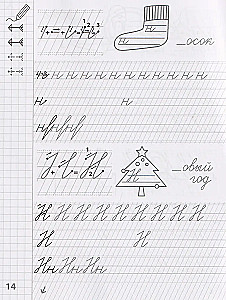 н _осок
н н н н н н н н н н н н
н н
Н _овый
год
Н Н Н Н Н Н Н Н Н
Н Н
Нн Нн Нн
14